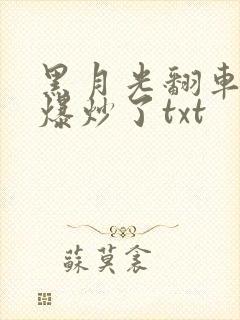 黑月光翻車
爆炒了txt
蘇莫衾